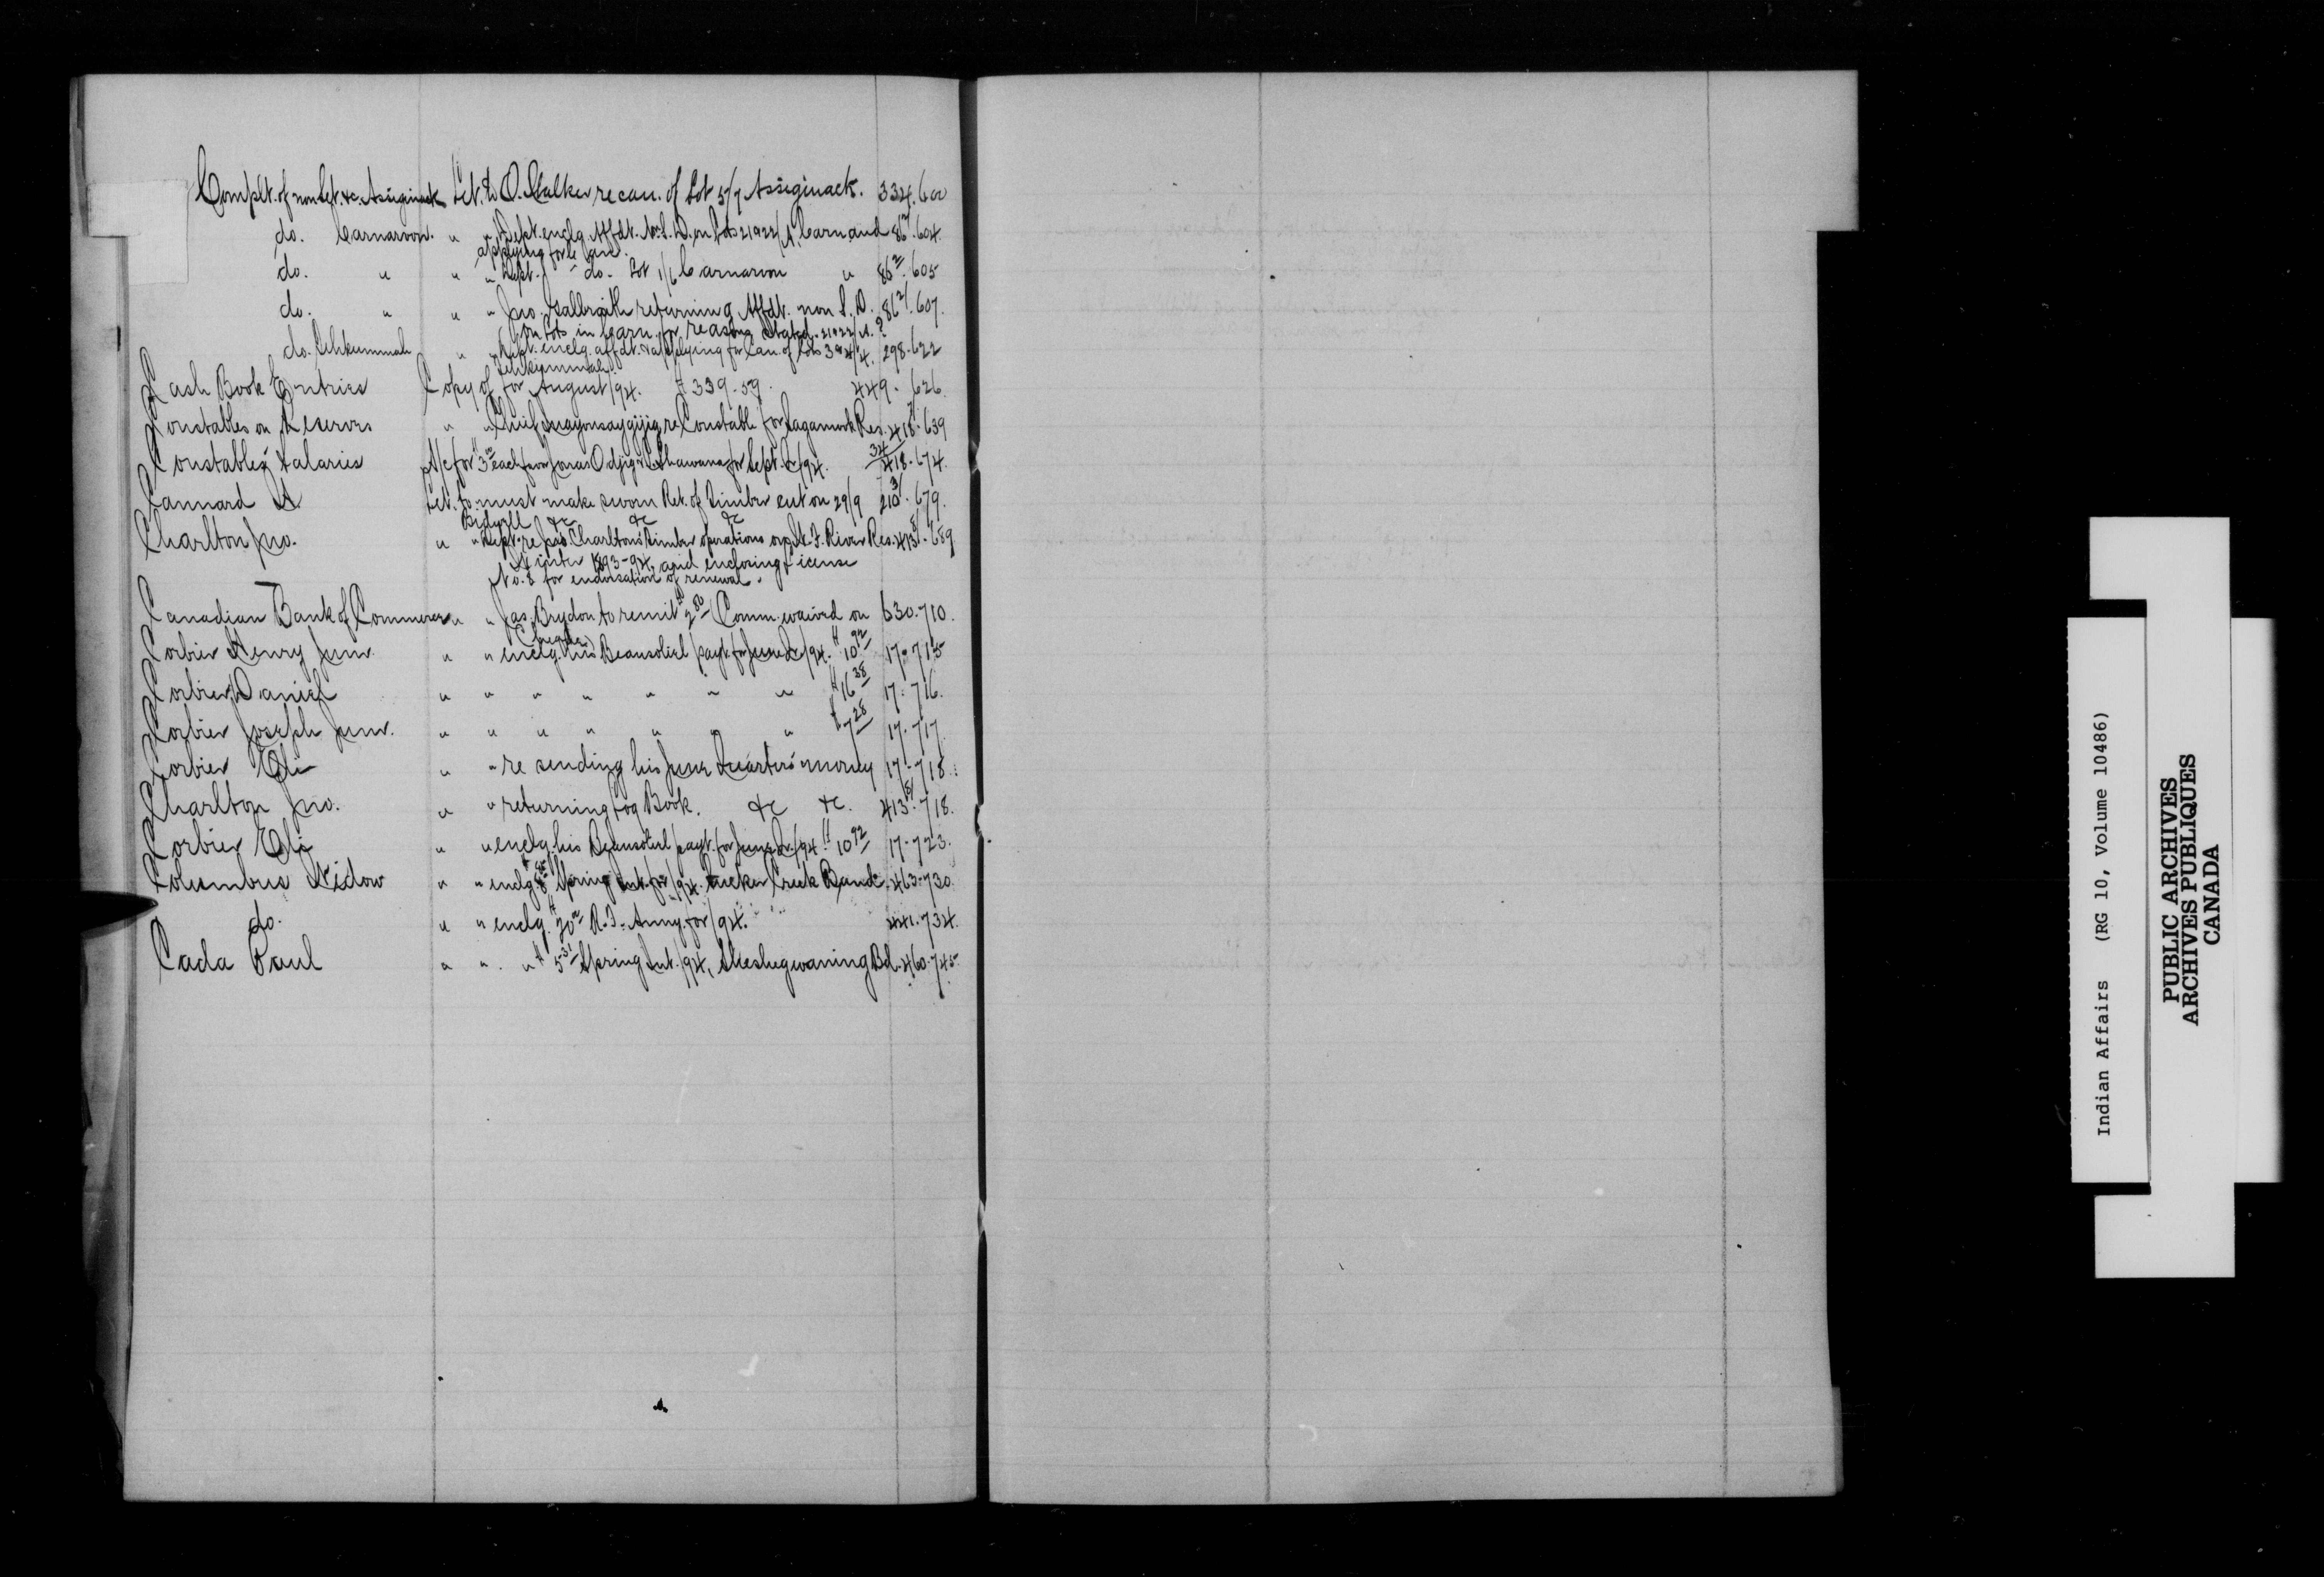 Complt. of non Set. &c. Assiginack Let. to D. Stalker re can. of Lot 5/7 Assiginack. 334. 600
do. Carnarvon. " " Dept. enclg. Affdt. N. S. D. on Lots 21 & 22/ A. Carn. and 86. 604.
applying for Can.
do. " " " Dept. do. Lot 1/6 Carnarvon " 86. 605
do. " " " Jno. Galbraith returning Affdt. non S. D. 86. 607.
on Lots in Carn. for reasons stated. 21 & 22/A. ?
do. Tehkummah " " Dept. enclg. affdt. & applying for Can. of Lots 3 & 4/4. 298. 622
Tehkummah.
Cash Book Entries Copy of for August /94. $339.59. 449. 626.
Constables on Reserves " " Chief re Constable for Sagamook Res. 418. 639
Constables' Salaries A/c for $3 each favor Jonas Odjig & Shawana for Sept. Qr/94. 34/418. 674.
Cannard A. Let. to must make sworn Ret. of timber cut on 29/9 210. 679.
Bidwell &c &c &c
Charlton Jno. " " Dept. re Jno. Charlton's timber operations on F. River Res. 413. 689
Winter 1893-94, and enclosing License
No. 8 for endorsation of renewal.
Canadian Bank of Commerce " " Jas. Brydon to remit $2.50 Comm. waived on 630. 710.
Cheque
Corbier Henry Junr. " " enclg. his Beausoliel payt. for June Qr/94. $10.92 17. 715
Corbier Daniel " " " " " " " $16.38 17. 716.
Corbier Joseph Junr. " " " " " " " $7.28 17. 717.
Corbier Eli " " re sending his June Quarters' money 17. 718.
Charlton Jno. " " returning Log Book. &c &c. 413. 718.
Corbier Eli " " enclg. his Beausoliel payt. for June Qr./94. $10.92 17. 723.
Columbus Widow " " enclg. Spring Int. for /94. Sucker Creek Band. 463. 730.
do. " " enclg. $20 R. T. Anny. for /94. " " 441. 734.
Cada Paul " " " $5.31 Spring Int. /94, Sheshegwaning Bd. 460. 745.
Indian Affairs (RG 10, Volume 10486)
PUBLIC ARCHIVES
ARCHIVES PUBLIQUES
CANADA